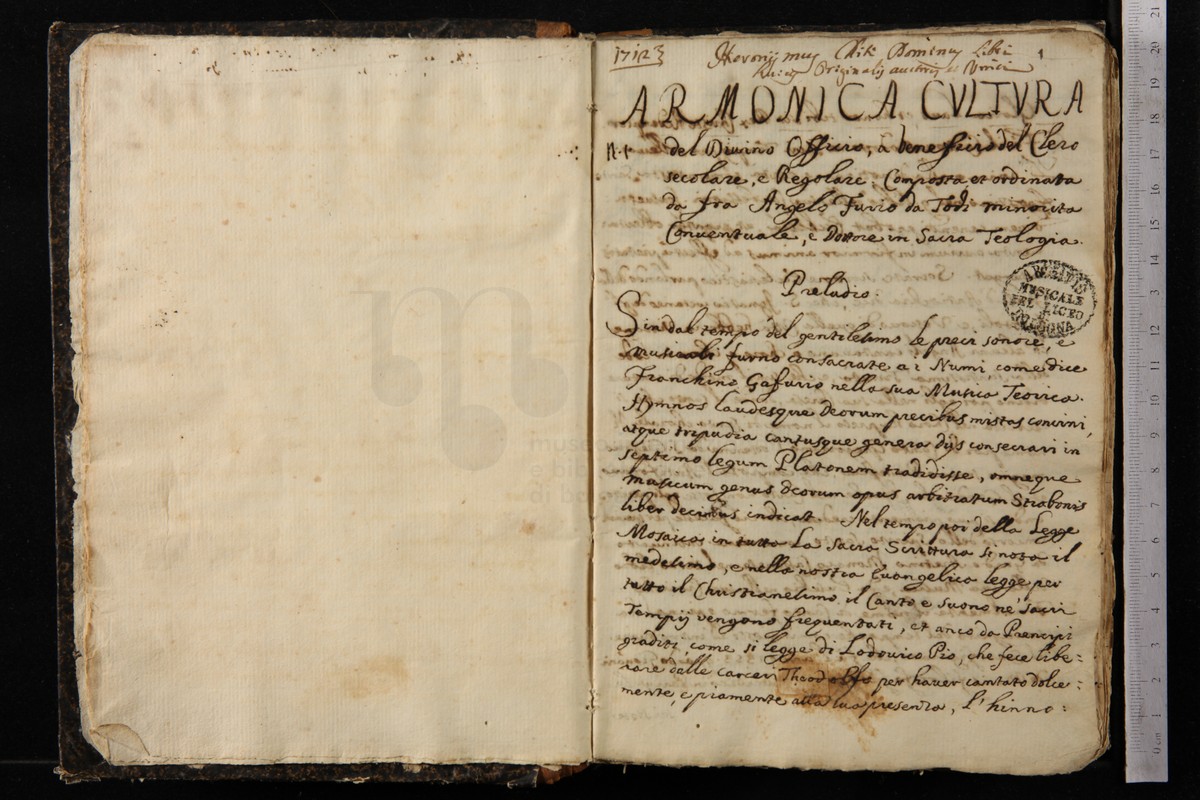 17123
1
Originalis
ARMONICA CVLTVRA
del Diuino Officio, à beneficio del Clero
secolare, e Regolare; Composta, et ordinata
da fra Angelo Furio da Todi minorita
Conuentuale, è Dottore in Sacra Teologia.
Preludio.
ARCHIVIO
MUSICALE
DEL LICEO
BOLOGNA
Sin dal tempo del gentilesimo le preci sonore, e
musicali furno consacrate a i Numi come dice
Franchino Gafurio nella sua Musica Teorica.
Hymnos laudesque Deorum precibus mistas concini,
atque tripudia cantusque genera dijs consecrari in
septimo legum Platonem tradidisse, omneque
musicum genus deorum opus arbitratum Strabonis
liber decimus indicat. Nel tempo poi della Legge
Mosaica, in tutta La Sacra Scrittura si nota il
medesimo, e nella nostra Euangelica legge per
tutto il Christianesimo il Canto e suono ne' Sacri
Tempij vengono frequentati, et anco da Prencipi
graditi, come si legge di Lodouico Pio, che fece libe:
rare dalle carceri Theodolfo per hauer cantato dolce:
mente, e piamente alla sua presenza, L'hinno:
museo
e bibl
di bo
0 cm 1 2 3 4 5 6 7 8 9 10 11 12 13 14 15 16 17 18 19 20 21